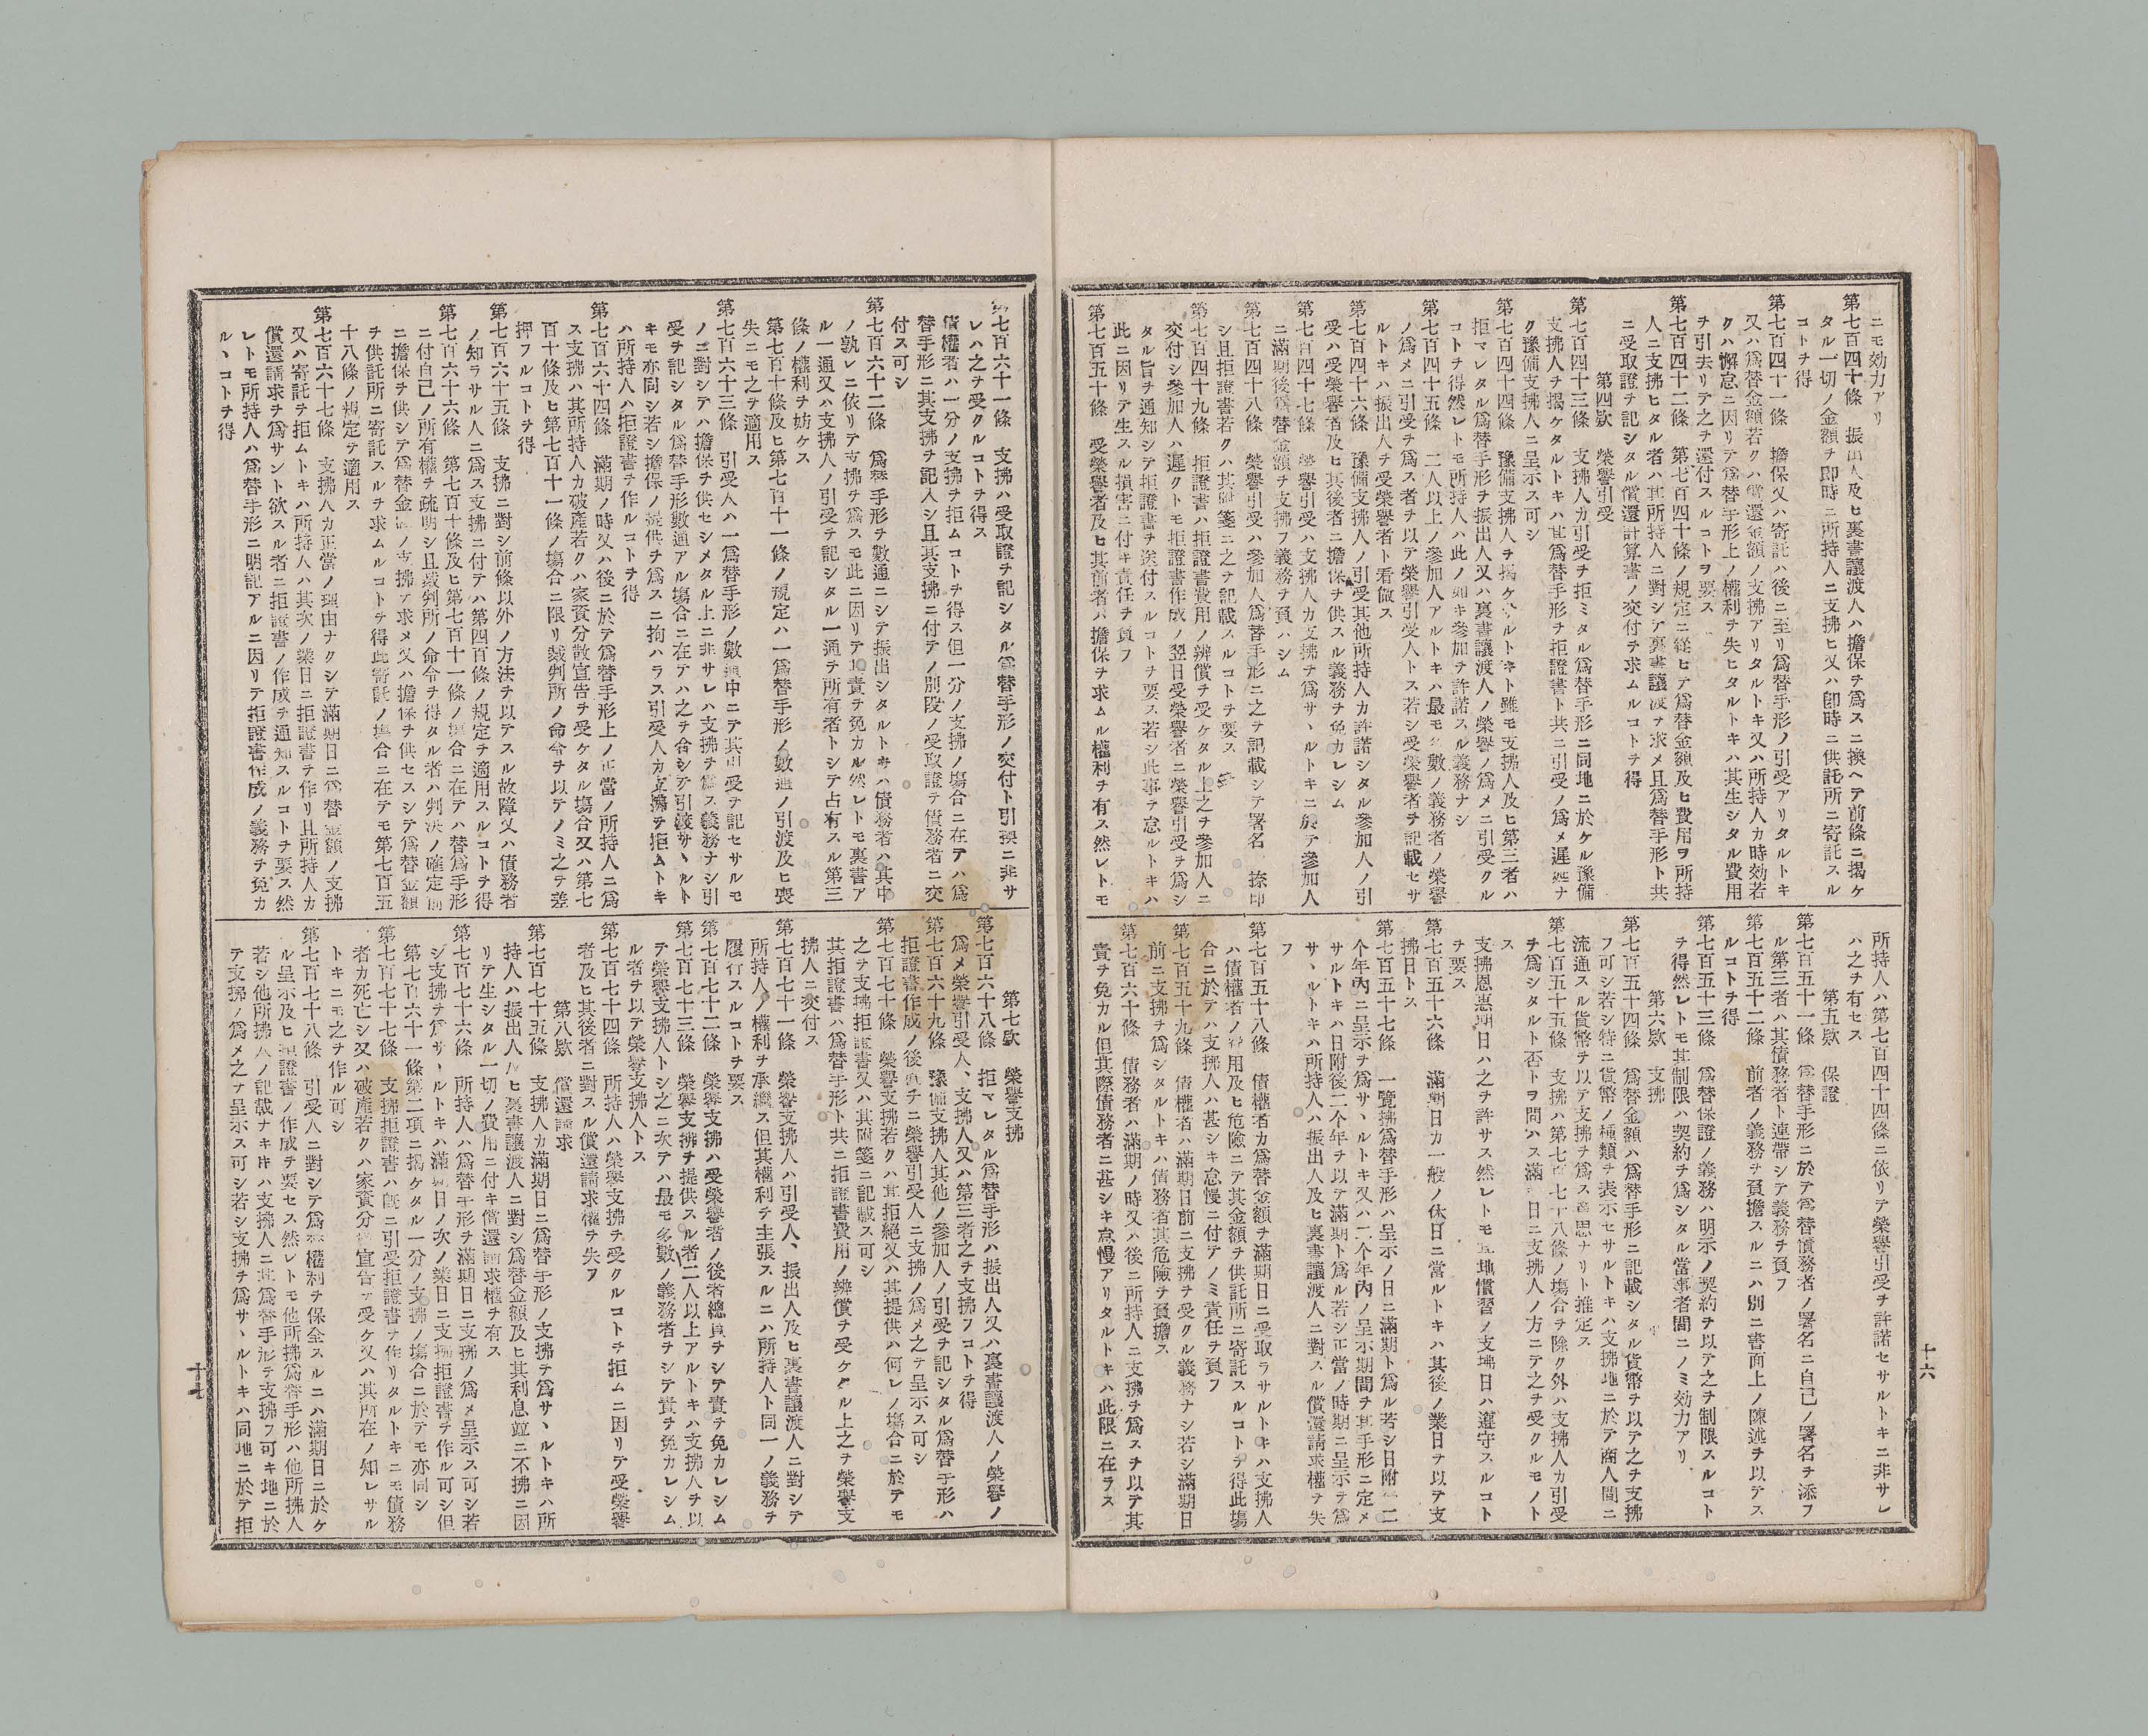 ニモ効力アリ
第七百四十條　振出人及ヒ裏書讓渡人ハ擔保ヲ爲スニ換ヘテ前條ニ揭ケ
タル一切ノ金額ヲ即時ニ所持人ニ支拂ヒ又ハ即時ニ供託所ニ寄託スル
コトヲ得
第七百四十一條　擔保又ハ寄託ハ後ニ至リ爲替手形ノ引受アリタルトキ
又ハ爲替金額若クハ償還金額ノ支拂アリタルトキ又ハ所持人カ時効若
クハ懈怠ニ因リテ爲替手形上ノ權利ヲ失ヒタルトキハ其生シタル費用
ヲ引去リテ之ヲ還付スルコトヲ要ス
第七百四十二條　第七百四十條ノ規定ニ從ヒテ爲替金額及ヒ費用ヲ所持
人ニ支拂ヒタル者ハ其所持人ニ對シテ裏書讓渡ヲ求メ且爲替手形ト共
ニ受取證ヲ記シタル償還計算書ノ交付ヲ求ムルコトヲ得
第四欵　榮譽引受
第七百四十三條　支拂人カ引受ヲ拒ミタル爲替手形ニ同地ニ於ケル豫備
支拂人ヲ揭ケタルトキハ其爲替手形ヲ拒證書ト共ニ引受ノ爲メ遲延ナ
ク豫備支拂人ニ呈示ス可シ
第七百四十四條　豫備支拂人ヲ揭ケサルトキト雖モ支拂人及ヒ第三者ハ
拒マレタル爲替手形ヲ振出人又ハ裏書讓渡人ノ榮譽ノ爲メニ引受クル
コトヲ得然レトモ所持人ハ此ノ如キ參加ヲ許諾スル義務ナシ
第七百四十五條　二人以上ノ參加人アルトキハ最モ多數ノ義務者ノ榮譽
ノ爲メニ引受ヲ爲ス者ヲ以テ榮譽引受人トス若シ受榮譽者ヲ記載セサ
ルトキハ振出人ヲ受榮譽者ト看做ス
第七百四十六條　豫備支拂人ノ引受其他所持人カ許諾シタル參加人ノ引
受ハ受榮譽者及ヒ其後者ニ擔保ヲ供スル義務ヲ免カレシム
第七百四十七條　榮譽引受ハ支拂人カ支拂ヲ爲サヽルトキニ於テ參加人
ニ滿期後爲替金額ヲ支拂フ義務ヲ負ハシム
第七百四十八條　榮譽引受ハ參加人爲替手形ニ之ヲ記載シテ署名　捺印
シ且拒證書若クハ其附箋ニ之ヲ記載スルコトヲ要ス
第七百四十九條　拒證書ハ拒證書費用ノ辨償ヲ受ケタル上之ヲ參加人ニ
交付シ參加人ハ遲クトモ拒證書作成ノ翌日受榮譽者ニ榮譽引受ヲ爲シ
タル旨ヲ通知シテ拒證書ヲ送付スルコトヲ要ス若シ此事ヲ怠ルトキハ
此ニ因リテ生スル損害ニ付キ責任ヲ負フ
第七百五十條　受榮譽者及ヒ其前者ハ擔保ヲ求ムル權利ヲ有ス然レトモ
所持人ハ第七百四十四條ニ依リテ榮譽引受ヲ許諾セサルトキニ非サレ
ハ之ヲ有セス
第五欵　保證
第七百五十一條　爲替手形ニ於テ爲替債務者ノ署名ニ自己ノ署名ヲ添フ
ル第三者ハ其債務者ト連帶シテ義務ヲ負フ
第七百五十二條　前者ノ義務ヲ負擔スルニハ別ニ書面上ノ陳述ヲ以テス
ルコトヲ得
第七百五十三條　爲替保證ノ義務ハ明示ノ契約ヲ以テ之ヲ制限スルコト
ヲ得然レトモ其制限ハ契約ヲ爲シタル當事者間ニノミ効力アリ
第六欵　支拂
第七百五十四條　爲替金額ハ爲替手形ニ記載シタル貨幣ヲ以テ之ヲ支拂
フ可シ若シ特ニ貨幣ノ種類ヲ表示セサルトキハ支拂地ニ於テ商人間ニ
流通スル貨幣ヲ以テ支拂ヲ爲ス意思ナリト推定ス
第七百五十五條　支拂ハ第七百七十八條ノ塲合ヲ除ク外ハ支拂人カ引受
ヲ爲シタルト否トヲ問ハス滿期日ニ支拂人ノ方ニテ之ヲ受クルモノト
ス
支拂恩惠期日ハ之ヲ許サス然レトモ其地慣習ノ支拂日ハ遵守スルコト
ヲ要ス
第七百五十六條　滿期日カ一般ノ休日ニ當ルトキハ其後ノ業日ヲ以テ支
拂日トス
第七百五十七條　一覽拂爲替手形ハ呈示ノ日ニ滿期ト爲ル若シ日附後二
个年內ニ呈示ヲ爲サヽルトキ又ハ二个年內ノ呈示期間ヲ其手形ニ定メ
サルトキハ日附後二个年ヲ以テ滿期ト爲ル若シ正當ノ時期ニ呈示ヲ爲
サヽルトキハ所持人ハ振出人及ヒ裏書讓渡人ニ對スル償還請求權ヲ失
フ
第七百五十八條　債權者カ爲替金額ヲ滿期日ニ受取ラサルトキハ支拂人
ハ債權者ノ費用及ヒ危險ニテ其金額ヲ供託所ニ寄託スルコトヲ得此塲
合ニ於テハ支拂人ハ甚シキ怠慢ニ付テノミ責任ヲ負フ
第七百五十九條　債權者ハ滿期日前ニ支拂ヲ受クル義務ナシ若シ滿期日
前ニ支拂ヲ爲シタルトキハ債務者其危險ヲ負擔ス
第七百六十條　債務者ハ滿期ノ時又ハ後ニ所持人ニ支拂ヲ爲スヲ以テ其
責ヲ免カル但其際債務者ニ甚シキ怠慢アリタルトキハ此限ニ在ラス
十六
第七百六十一條　支拂ハ受取證ヲ記シタル爲替手形ノ交付ト引換ニ非サ
レハ之ヲ受クルコトヲ得ス
債權者ハ一分ノ支拂ヲ拒ムコトヲ得ス但一分ノ支拂ノ塲合ニ在テハ爲
替手形ニ其支拂ヲ記入シ且其支拂ニ付テノ別段ノ受取證ヲ債務者ニ交
付ス可シ
第七百六十二條　爲替手形ヲ數通ニシテ振出シタルトキハ債務者ハ其中
ノ孰レニ依リテ支拂ヲ爲スモ此ニ因リテ其責ヲ免カル然レトモ裏書ア
ル一通又ハ支拂人ノ引受ヲ記シタル一通ヲ所有者トシテ占有スル第三
條ノ權利ヲ妨ケス
第七百十條及ヒ第七百十一條ノ規定ハ一爲替手形ノ數通ノ引渡及ヒ喪
失ニモ之ヲ適用ス
第七百六十三條　引受人ハ一爲替手形ノ數通中ニテ其引受ヲ記セサルモ
ノニ對シテハ擔保ヲ供セシメタル上ニ非サレハ支拂ヲ爲ス義務ナシ引
受ヲ記シタル爲替手形數通アル塲合ニ在テハ之ヲ合シテ引渡サヽルト
キモ亦同シ若シ擔保ノ提供ヲ爲スニ拘ハラス引受人カ支拂ヲ拒ムトキ
ハ所持人ハ拒證書ヲ作ルコトヲ得
第七百六十四條　滿期ノ時又ハ後ニ於テ爲替手形上ノ正當ノ所持人ニ爲
ス支拂ハ其所持人カ破產若クハ家資分散宣告ヲ受ケタル塲合又ハ第七
百十條及ヒ第七百十一條ノ塲合ニ限リ裁判所ノ命令ヲ以テノミ之ヲ差
押フルコトヲ得
第七百六十五條　支拂ニ對シ前條以外ノ方法ヲ以テスル故障又ハ債務者
ノ知ラサル人ニ爲ス支拂ニ付テハ第四百條ノ規定ヲ適用スルコトヲ得
第七百六十六條　第七百十條及ヒ第七百十一條ノ塲合ニ在テハ替爲手形
ニ付自己ノ所有權ヲ疏明シ且裁判所ノ命令ヲ得タル者ハ判决ノ確定前
ニ擔保ヲ供シテ爲替金額ノ支拂ヲ求メ又ハ擔保ヲ供セスシテ爲替金額
ヲ供託所ニ寄託スルヲ求ムルコトヲ得此寄託ノ塲合ニ在テモ第七百五
十八條ノ規定ヲ適用ス
第七百六十七條　支拂人カ正當ノ理由ナクシテ滿期日ニ爲替金額ノ支拂
又ハ寄託ヲ拒ムトキハ所持人ハ其次ノ業日ニ拒證書ヲ作リ且所持人カ
償還請求ヲ爲サント欲スル者ニ拒證書ノ作成ヲ通知スルコトヲ要ス然
レトモ所持人ハ爲替手形ニ明記アルニ因リテ拒證書作成ノ義務ヲ免カ
ルヽコトヲ得
第七欵　榮譽支拂
第七百六十八條　拒マレタル爲替手形ハ振出人又ハ裏書讓渡人ノ榮譽ノ
爲メ榮譽引受人、支拂人又ハ第三者之ヲ支拂フコトヲ得
第七百六十九條　豫備支拂人其他ノ參加人ノ引受ヲ記シタル爲替手形ハ
拒證書作成ノ後直チニ榮譽引受人ニ支拂ノ爲メ之ヲ呈示ス可シ
第七百七十條　榮譽支拂若クハ其拒絕又ハ其提供ハ何レノ塲合ニ於テモ
之ヲ支拂拒證書又ハ其附箋ニ記載ス可シ
其拒證書ハ爲替手形ト共ニ拒證書費用ノ辨償ヲ受ケタル上之ヲ榮譽支
拂人ニ交付ス
第七百七十一條　榮譽支拂人ハ引受人、振出人及ヒ裏書讓渡人ニ對シテ
所持人ノ權利ヲ承繼ス但其權利ヲ主張スルニハ所持人ト同一ノ義務ヲ
履行スルコトヲ要ス
第七百七十二條　榮譽支拂ハ受榮譽者ノ後者總員ヲシテ責ヲ免カレシム
第七百七十三條　榮譽支拂ヲ提供スル者二人以上アルトキハ支拂人ヲ以
テ榮譽支拂人トシ之ニ次テハ最モ多數ノ義務者ヲシテ責ヲ免カレシム
ル者ヲ以テ榮譽支拂人トス
第七百七十四條　所持人ハ榮譽支拂ヲ受クルコトヲ拒ムニ因リテ受榮譽
者及ヒ其後者ニ對スル償還請求權ヲ失フ
第八欵　償還請求
第七百七十五條　支拂人カ滿期日ニ爲替手形ノ支拂ヲ爲サヽルトキハ所
持人ハ振出人及ヒ裏書讓渡人ニ對シ爲替金額及ヒ其利息竝ニ不拂ニ因
リテ生シタル一切ノ費用ニ付キ償還請求權ヲ有ス
第七百七十六條　所持人ハ爲替手形ヲ滿期日ニ支拂ノ爲メ呈示ス可シ若
シ支拂ヲ爲サヽルトキハ滿期日ノ次ノ業日ニ支拂拒證書ヲ作ル可シ但
第七百六十一條第二項ニ揭ケタル一分ノ支拂ノ塲合ニ於テモ亦同シ
第七百七十七條　支拂拒證書ハ既ニ引受拒證書ヲ作リタルトキニモ債務
者カ死亡シ又ハ破產若クハ家資分散宣告ヲ受ケ又ハ其所在ノ知レサル
トキニモ之ヲ作ル可シ
第七百七十八條　引受人ニ對シテ爲替權利ヲ保全スルニハ滿期日ニ於ケ
ル呈示及ヒ拒證書ノ作成ヲ要セス然レトモ他所拂爲替手形ハ他所拂人
若シ他所拂人ノ記載ナキトキハ支拂人ニ其爲替手形ヲ支拂フ可キ地ニ於
テ支拂ノ爲メ之ヲ呈示ス可シ若シ支拂ヲ爲サヽルトキハ同地ニ於テ拒
十七